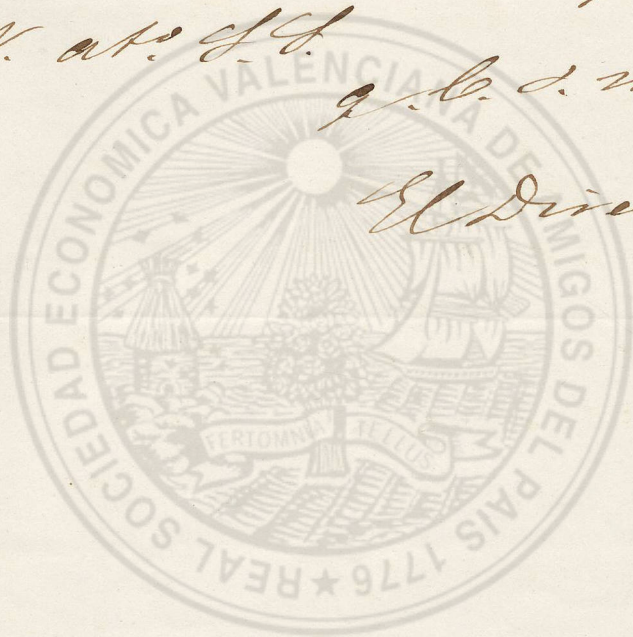 V. ato. S. S.
q. b. s. m
El Dire
REAL SOCIEDAD ECONOMICA VALENCIANA DE AMIGOS DEL PAIS 1776
FERT OMNIA TELLUS